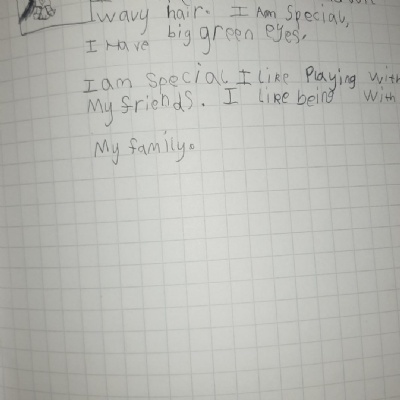 wavy hair. I Am Special,
I Have big green eyes.
I am Special I like Playing with
My friends. I like being with
My family.